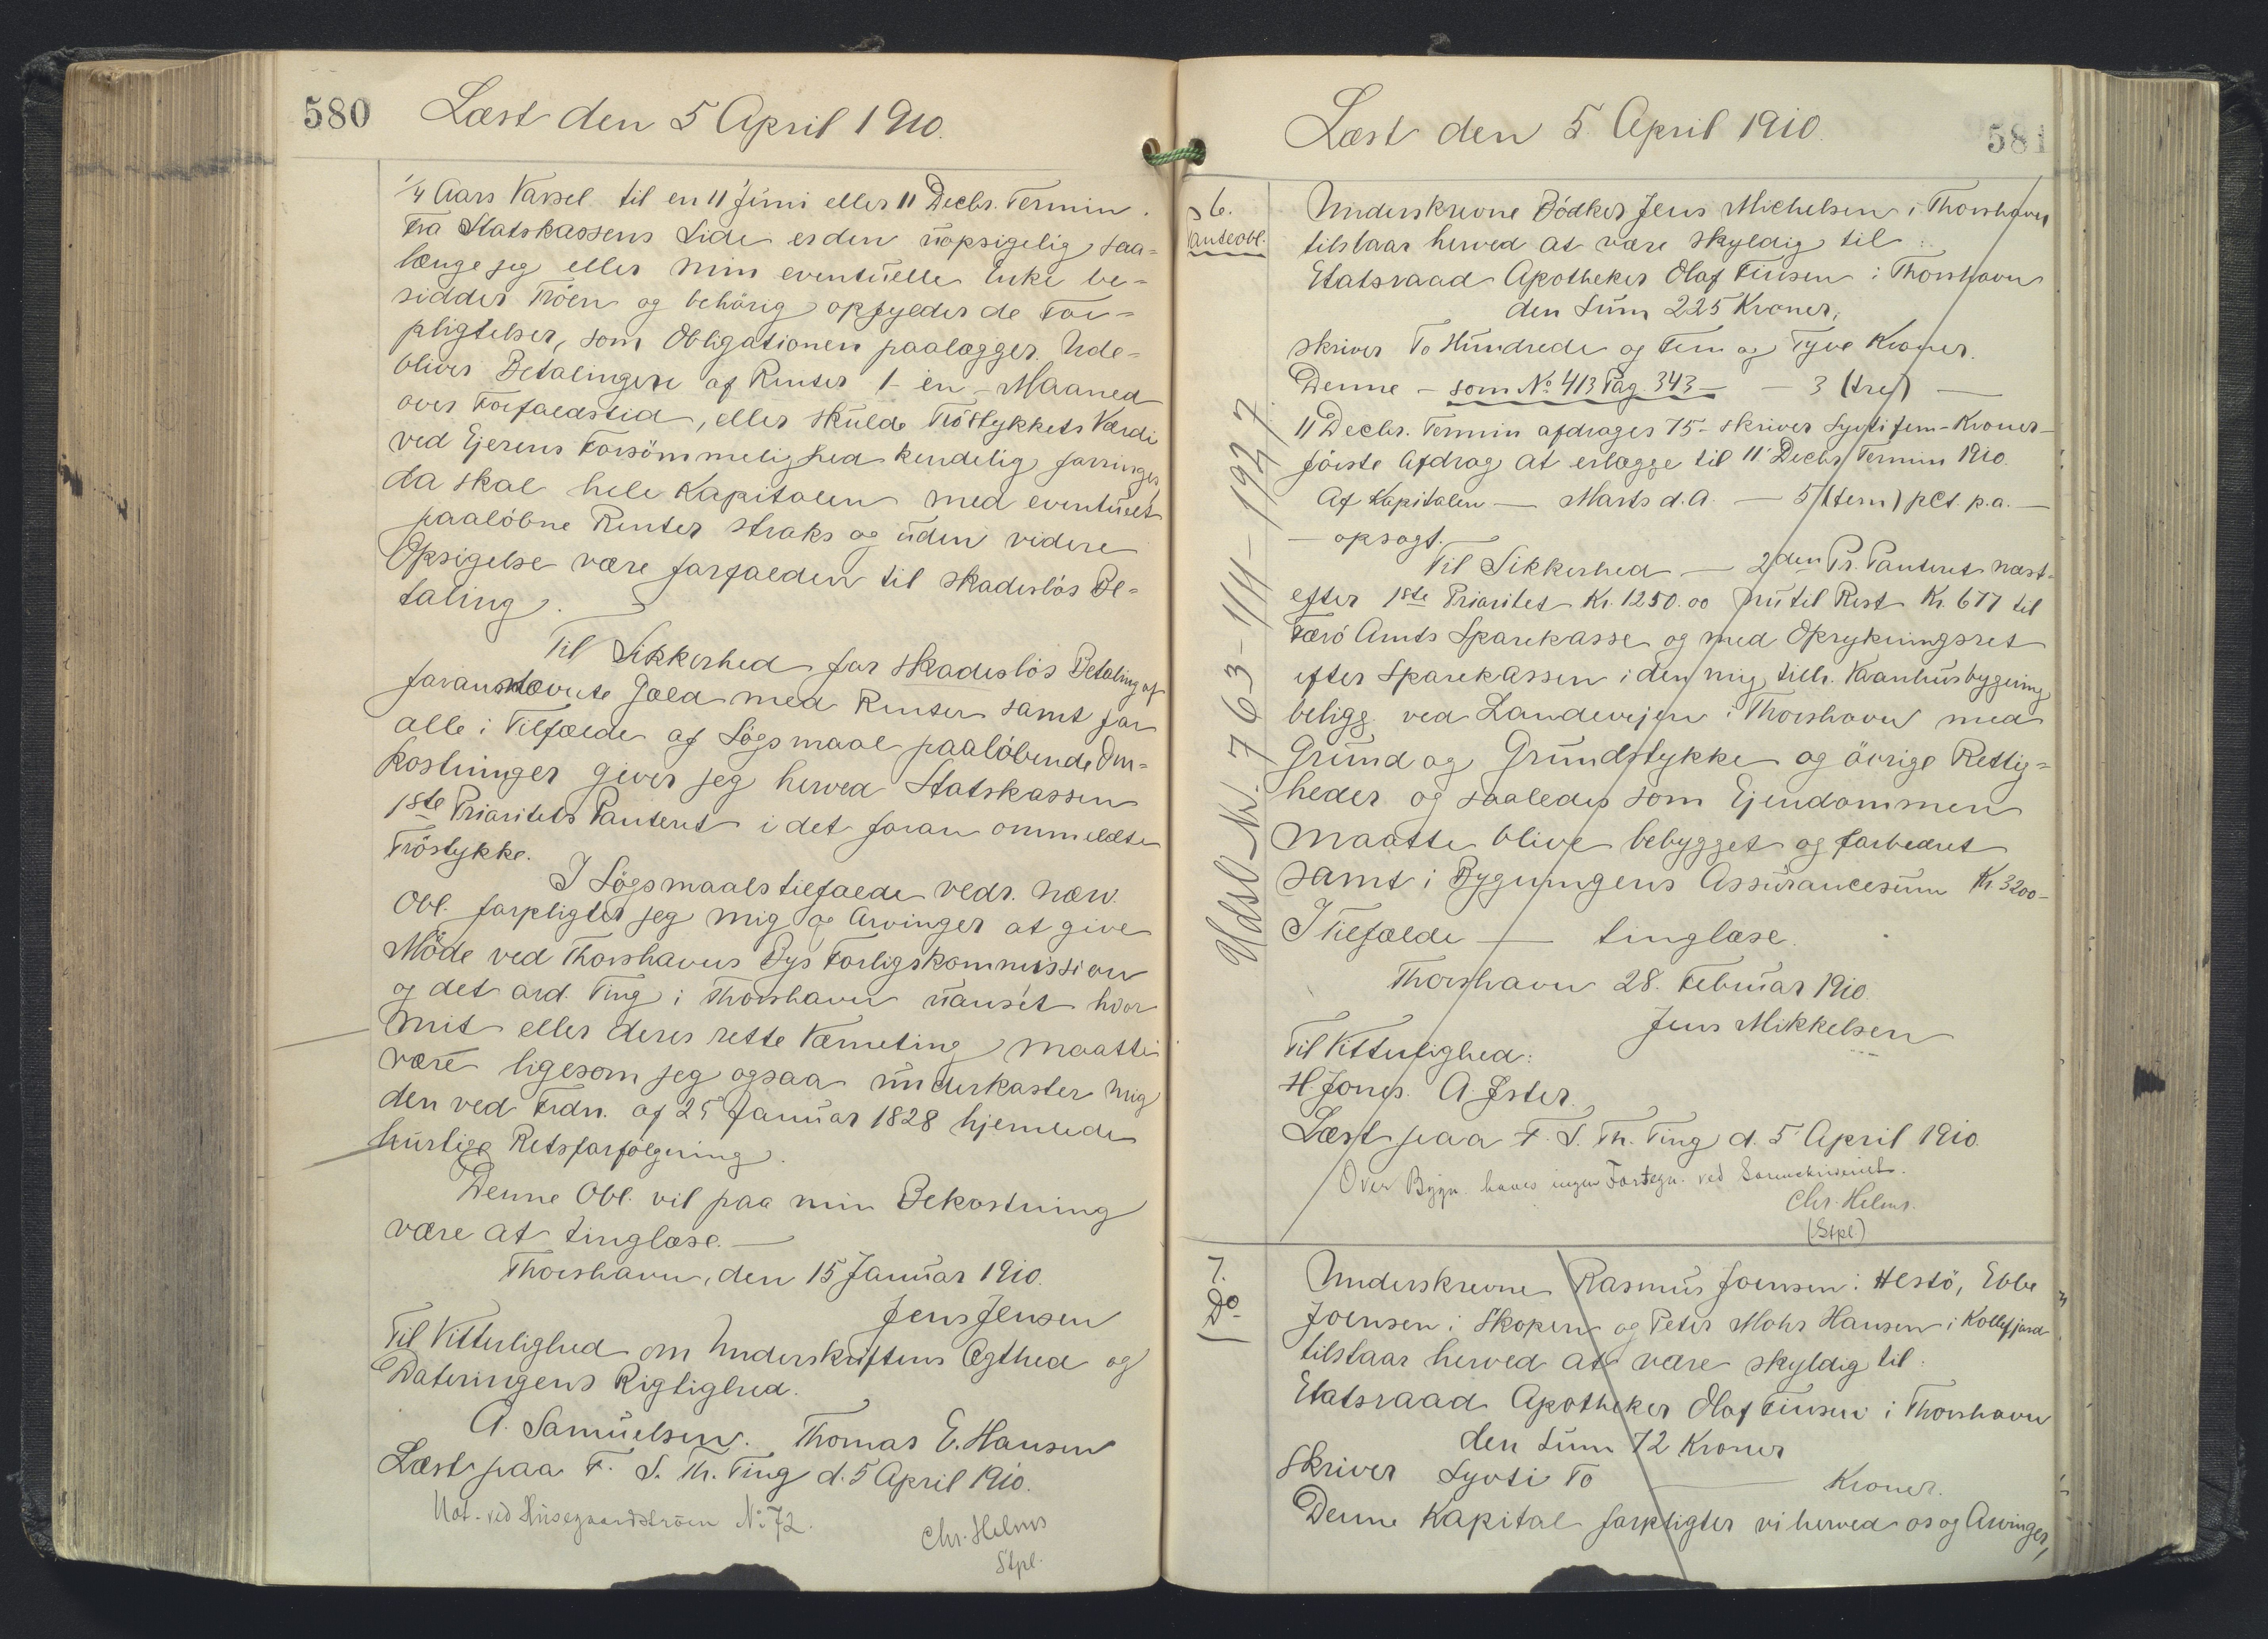 580
Læst den 5 April 1910.
1/4 Aars Varsel til en 11 Juni eller 11 Decbr. Termin.
Fra Statskassens Side er den uopsigelig saa-
længe jeg eller min eventuelle Enke be-
sidder Tröen og behörig opfylder de For-
pligtelser, som Obligationen paalægger. Ude-
bliver Betalingen af Renter 1 - en - Maaned
over Forfaldstid, eller skulde Tröstykkets Værdi
ved Ejerens Forsömmelighed kendelig forringes,
da skal hele Kapitalen med eventuelt
paalöbne Renter straks og uden videre
Opsigelse være forfalden til skadeslös Be-
taling.
Til Sikkerhed for skadeslös Betaling af
forannævnte Gæld med Renter samt for
alle i Tilfælde af Sögsmaal paalöbende Om-
kostninger giver jeg herved Statskassen
1ste Prioritets Panteret i det foran ommeldte
Tröstykke.
I Sögsmaalstilfælde vedr. nærv.
Obl. forpligter jeg mig og Arvinger at give
Möde ved Thorshavns Bys Forligskommission
og det ord. Ting i Thorshavn uanset hvor
mit eller deres rette Værneting maatte
være ligesom jeg ogsaa underkaster mig
den ved Frdn. af 25 Januar 1828 hjemlede
hurtige Retsforfölgning.
Denne Obl. vil paa min Bekostning
være at tinglæse.
Thorshavn, den 15 Januar 1910.
Jens Jensen
Til Vitterlighed om Underskriftens Ægthed og
Dateringens Rigtighed.
A. Samuelsen. Thomas E. Hansen
Læst paa F. S. Th. Ting d. 5 April 1910.
Not. ved Husegaardströen No 72.
Chr. Helms
Stpl.
Læst den 5 April 1910.
581
6.
Panteobl.
Underskrevne Bödker Jens Michelsen i Thorshavn
tilstaar herved at være skyldig til
Etatsraad Apotheker Olaf Finsen i Thorshavn
den Sum 225 Kroner,
skriver To Hundrede og Fem og Tyve Kroner.
Denne - som No 413 Pag. 343 - - 3 (tre) -
11 Decbr. Termin afdrages 75 - skriver Syvti fem - Kroner -
förste Afdrag at erlægge til 11 Decbr Termin 1910.
Af Kapitalen - Marts d. A. - 5 (fem) pCt. p.a. -
- opsagt.
Til Sikkerhed - 2den Pr. Panteret næst-
efter 1ste Prioritet Kr. 1250.00 nu til Rest Kr. 677 til
Færö Amts Sparekasse og med Oprykningsret
efter Sparekassen i den mig tilh. Vaanhusbygning
beligg. ved Landevejen i Thorshavn med
Grund og Grundstykke og övrige Rettig-
heder og saaledes som Ejendommen
maatte blive bebygget og forbedret
samt i Bygningens Assurancesum Kr. 3200-
I Tilfælde - tinglæse.
Thorshavn 28. Februar 1910.
Jens Mikkelsen
Til Vitterlighed:
H. Jones. A. Jster.
Læst paa F. S. Th. Ting d. 5 April 1910.
Over Bygn. haves ingen Fortegn. ved Sorenskriveriet.
Chr. Helms.
(Stpl)
Udsl. Nr. 763 - 1/11 - 1927.
7.
Do
Underskrevne Rasmus Joensen i Hestö, Ebbe
Joensen i Skopen og Peter Mohr Hansen i Kollefjord
tilstaar herved at være skyldig til:
Etatsraad Apotheker Olaf Finsen i Thorshavn
den Sum 72 Kroner
skriver Syvti To - Kroner.
Denne Kapital forpligter vi herved os og Arvinger,